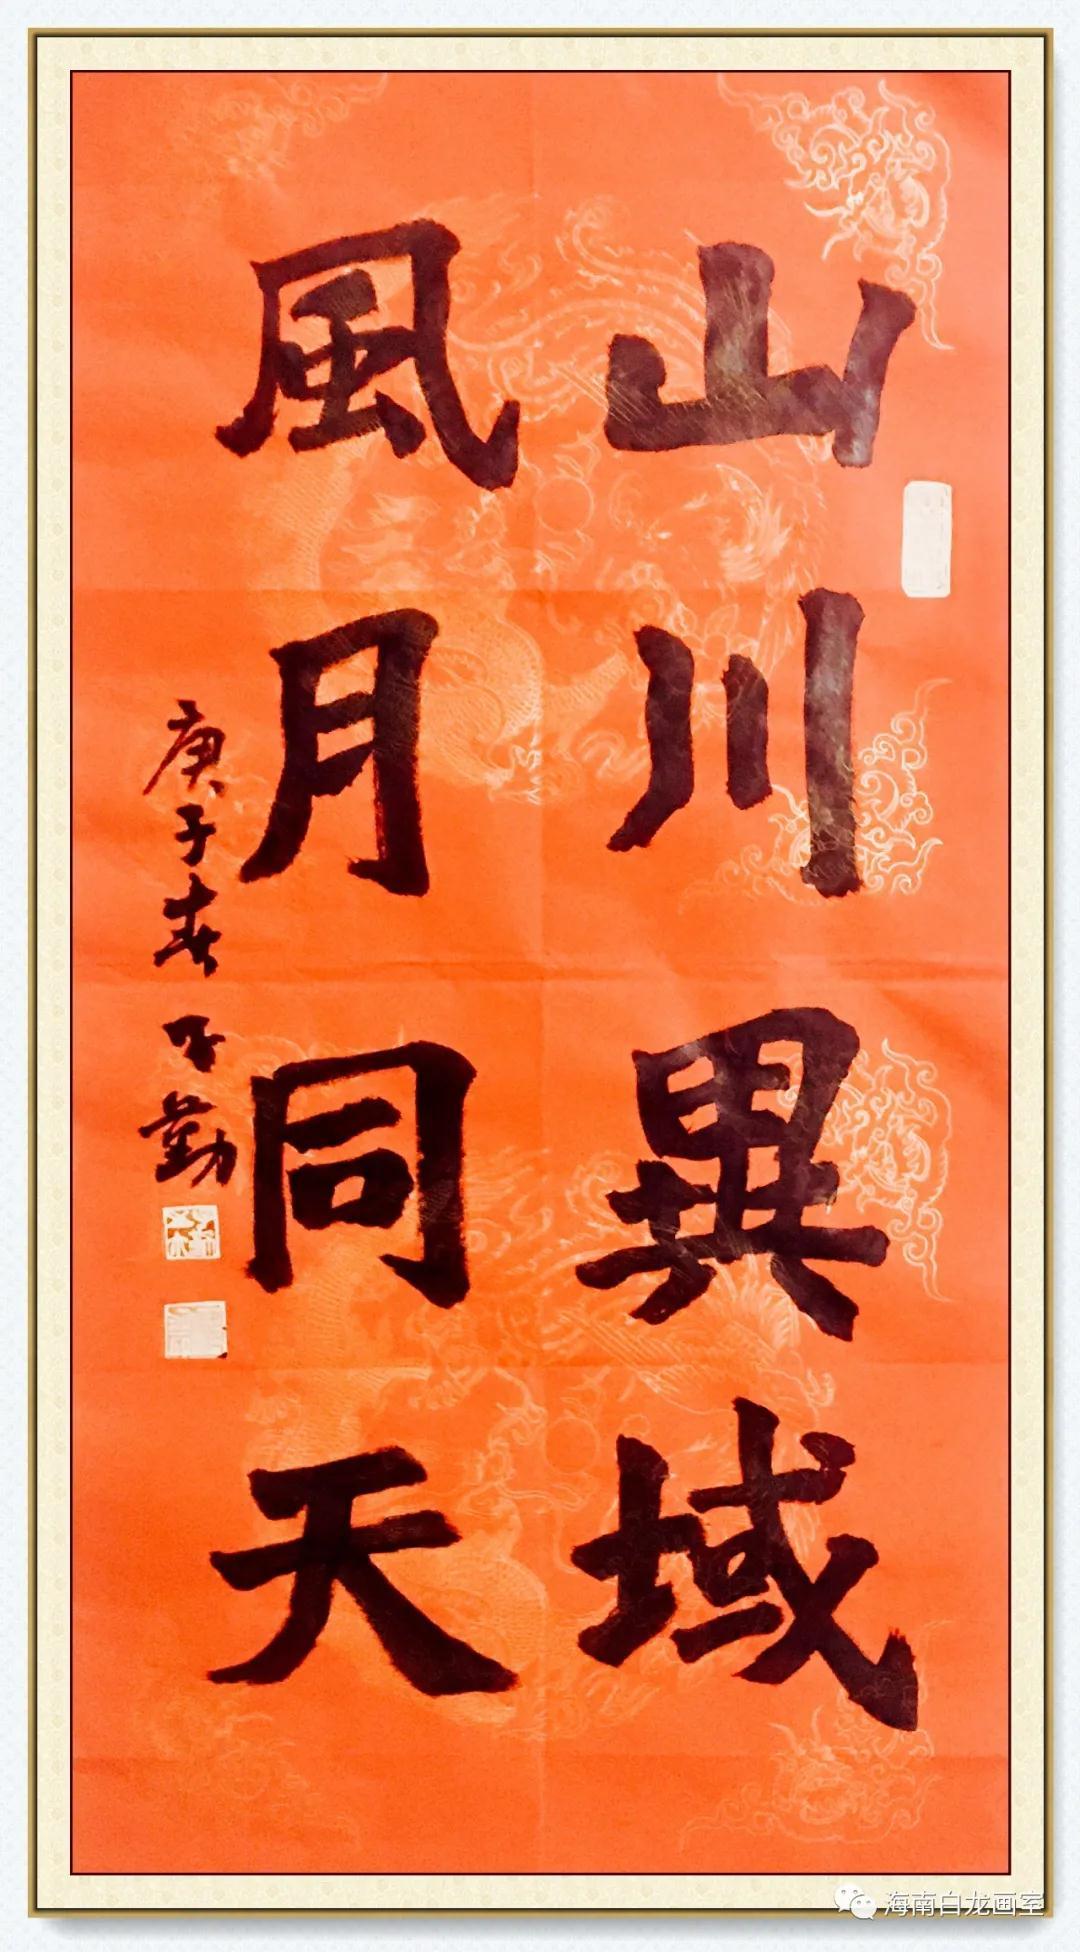 山川異域
風月同天
庚子春 不勤
海南白龙画室